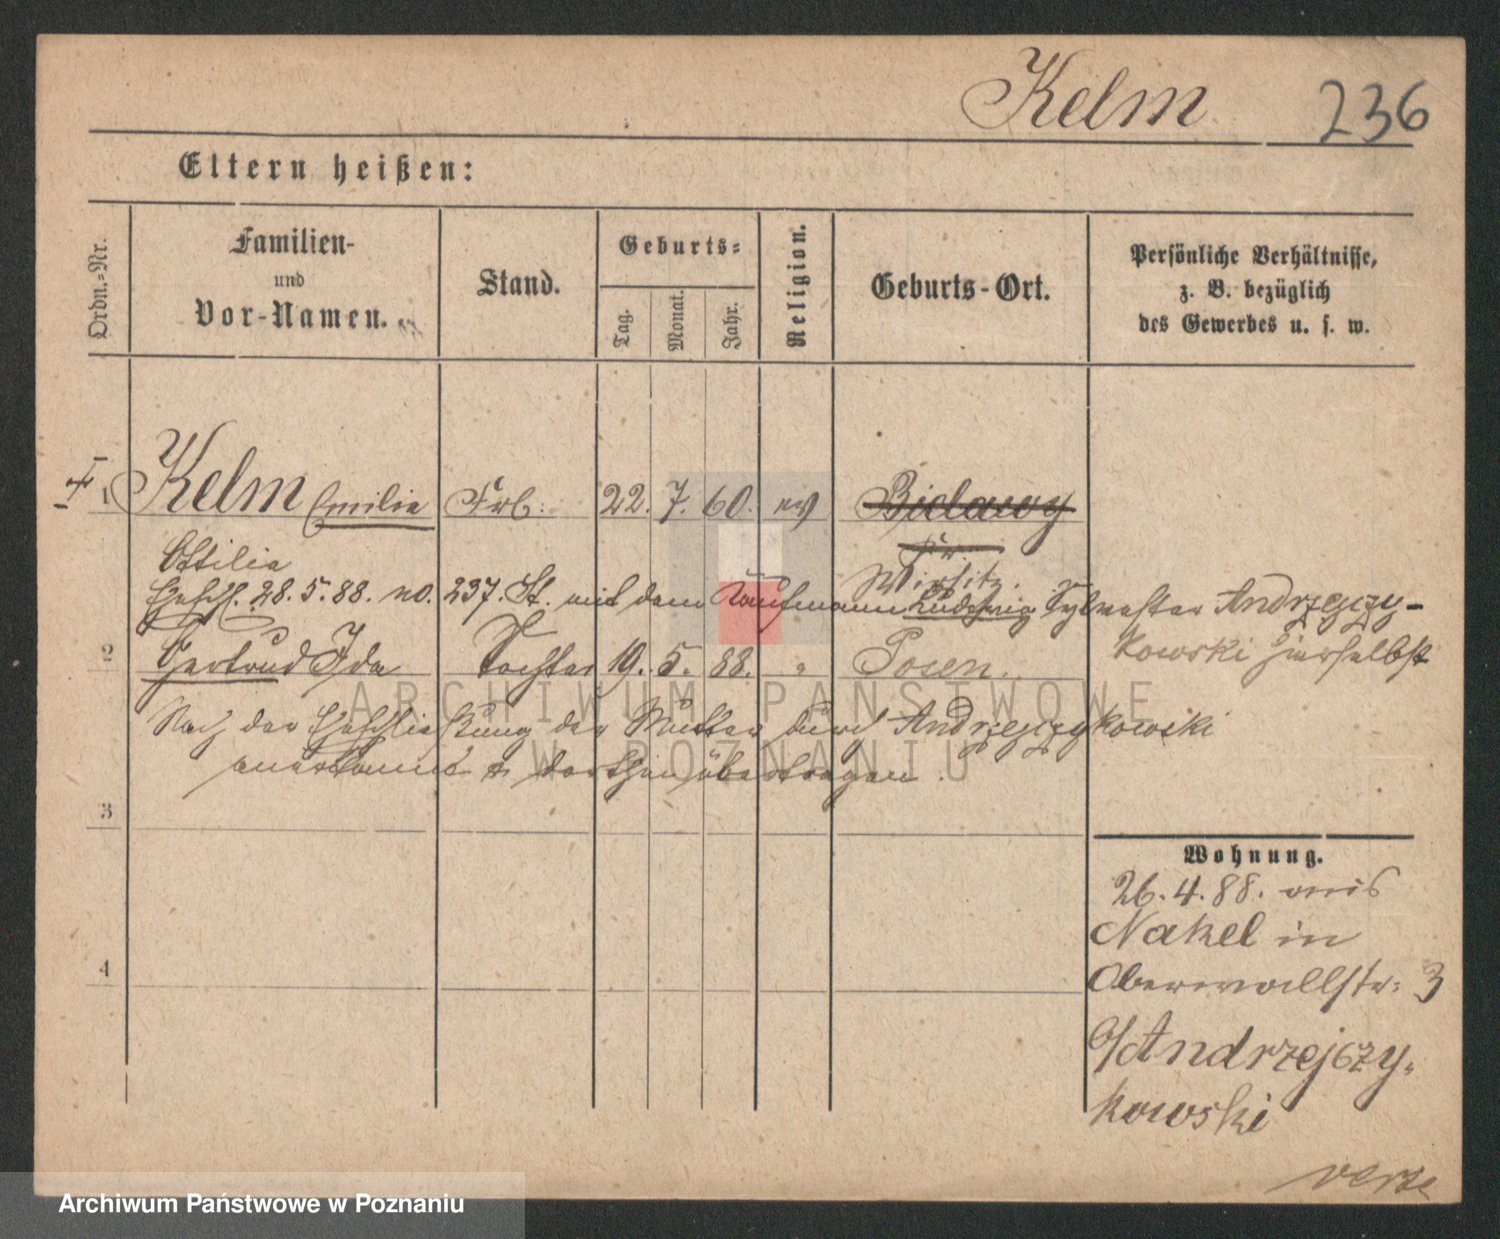 Kelm 236
Eltern heißen:
Ordn.-Nr.
Familien-
und
Vor-Namen.
Stand.
Geburts-
Tag.
Monat.
Jahr.
Religion.
Geburts-Ort.
Persönliche Verhältnisse,
z. B. bezüglich
des Gewerbes u. s. w.
1 Kelm Emilie Frl. 22. 7. 60. ev Bielawy
Ottilie Kr. Wirsitz.
28. 5. 88. no. 237. St. mit dem Kaufmann Ludwig Sylvester Andrzejczy-
kowski hierselbst
2 Gertrud Ida Tochter 19. 5. 88. " Posen.
Nach der Eheschließung der Mutter durch Andrzejczykowski
anerkannt & dorthin übertragen.
3
4
Wohnung.
26. 4. 88. aus
Nakel in
Oberwallstr. 3
b/Andrzejczy-
kowski
verte
ARCHIWUM PAŃSTWOWE
W POZNANIU
Archiwum Państwowe w Poznaniu